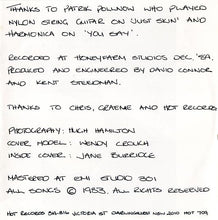 THANKS TO PATRIK POLLNOW WHO PLAYED
NYLON STRING GUITAR ON 'JUST SKIN' AND
HARMONICA ON 'YOU SAY'.
RECORDED AT HONEYFARM STUDIOS DEC. '84.
PRODUCED AND ENGINEERED BY DAVID CONNOR
AND KENT STEEDMAN.
THANKS TO CHRIS, GRAEME AND HOT RECORDS
PHOTOGRAPHY: HUGH HAMILTON
COVER MODEL: WENDY CROUCH
INSIDE COVER: JANE BURRIDGE
MASTERED AT EMI STUDIO 301
ALL SONGS © 1983. ALL RIGHTS RESERVED
HOT RECORDS VICTORIA ST DARLINGHURST NSW 2010 HOT 709